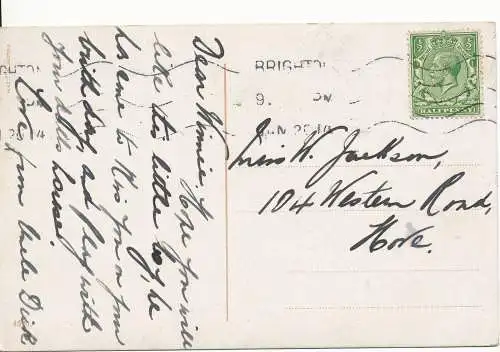 Dear Winnie, Hope you will
like this little boy, he
has come to Kiss you on your
birthday, and play with
your dolls house
Love from Uncle Dick
BRIGHTON
9. PM
JAN 28 14
HALFPENNY
Miss W. Jackson,
104 Western Road,
Hove.